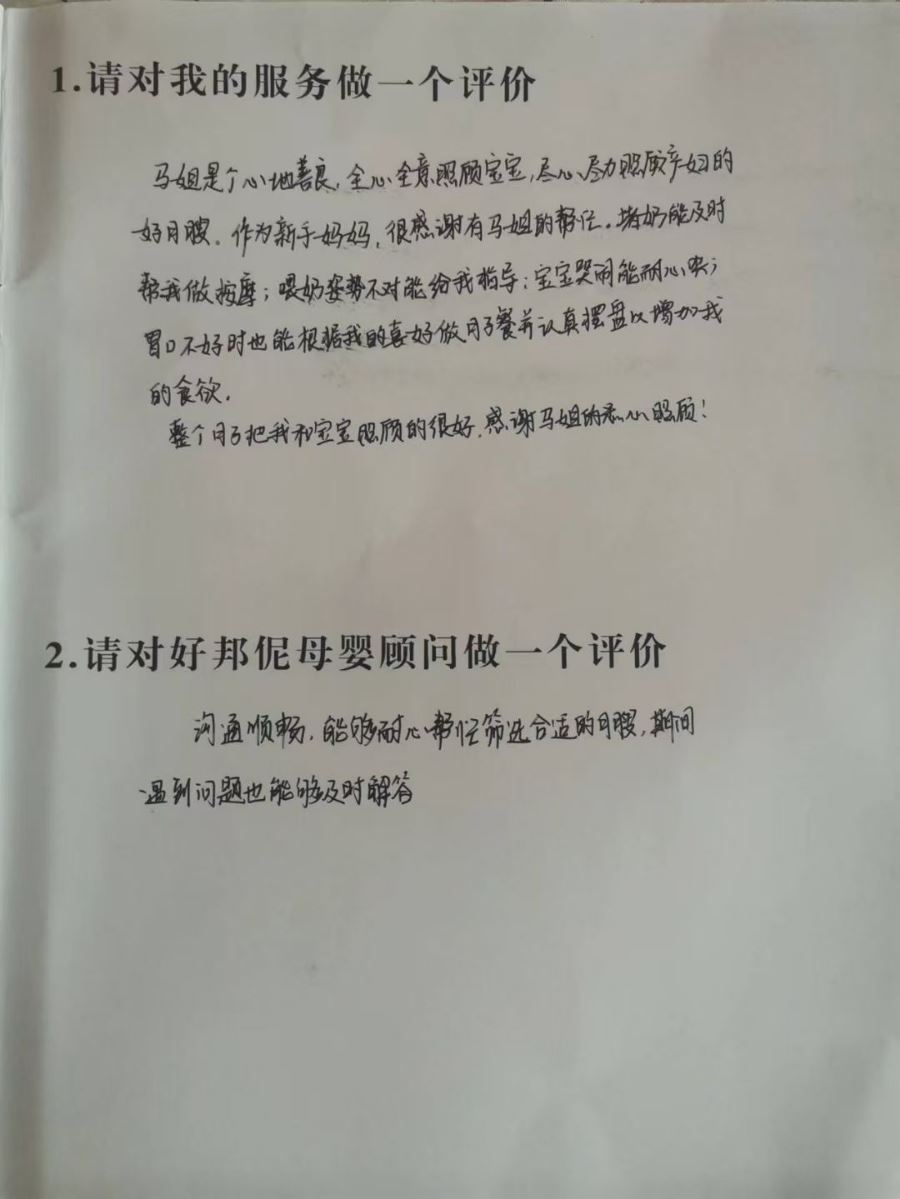 1.请对我的服务做一个评价
马姐是个心地善良，全心全意照顾宝宝，尽心尽力照顾产妇的
好月嫂。作为新手妈妈，很感谢有马姐的帮忙。堵奶能及时
帮我做按摩；喂奶姿势不对能给我指导；宝宝哭闹能耐心哄；
胃口不好时也能根据我的喜好做月子餐并认真摆盘以增加我
的食欲。
整个月子把我和宝宝照顾的很好，感谢马姐的悉心照顾！
2.请对好邦伲母婴顾问做一个评价
沟通顺畅，能够耐心帮忙筛选合适的月嫂，期间
遇到问题也能够及时解答